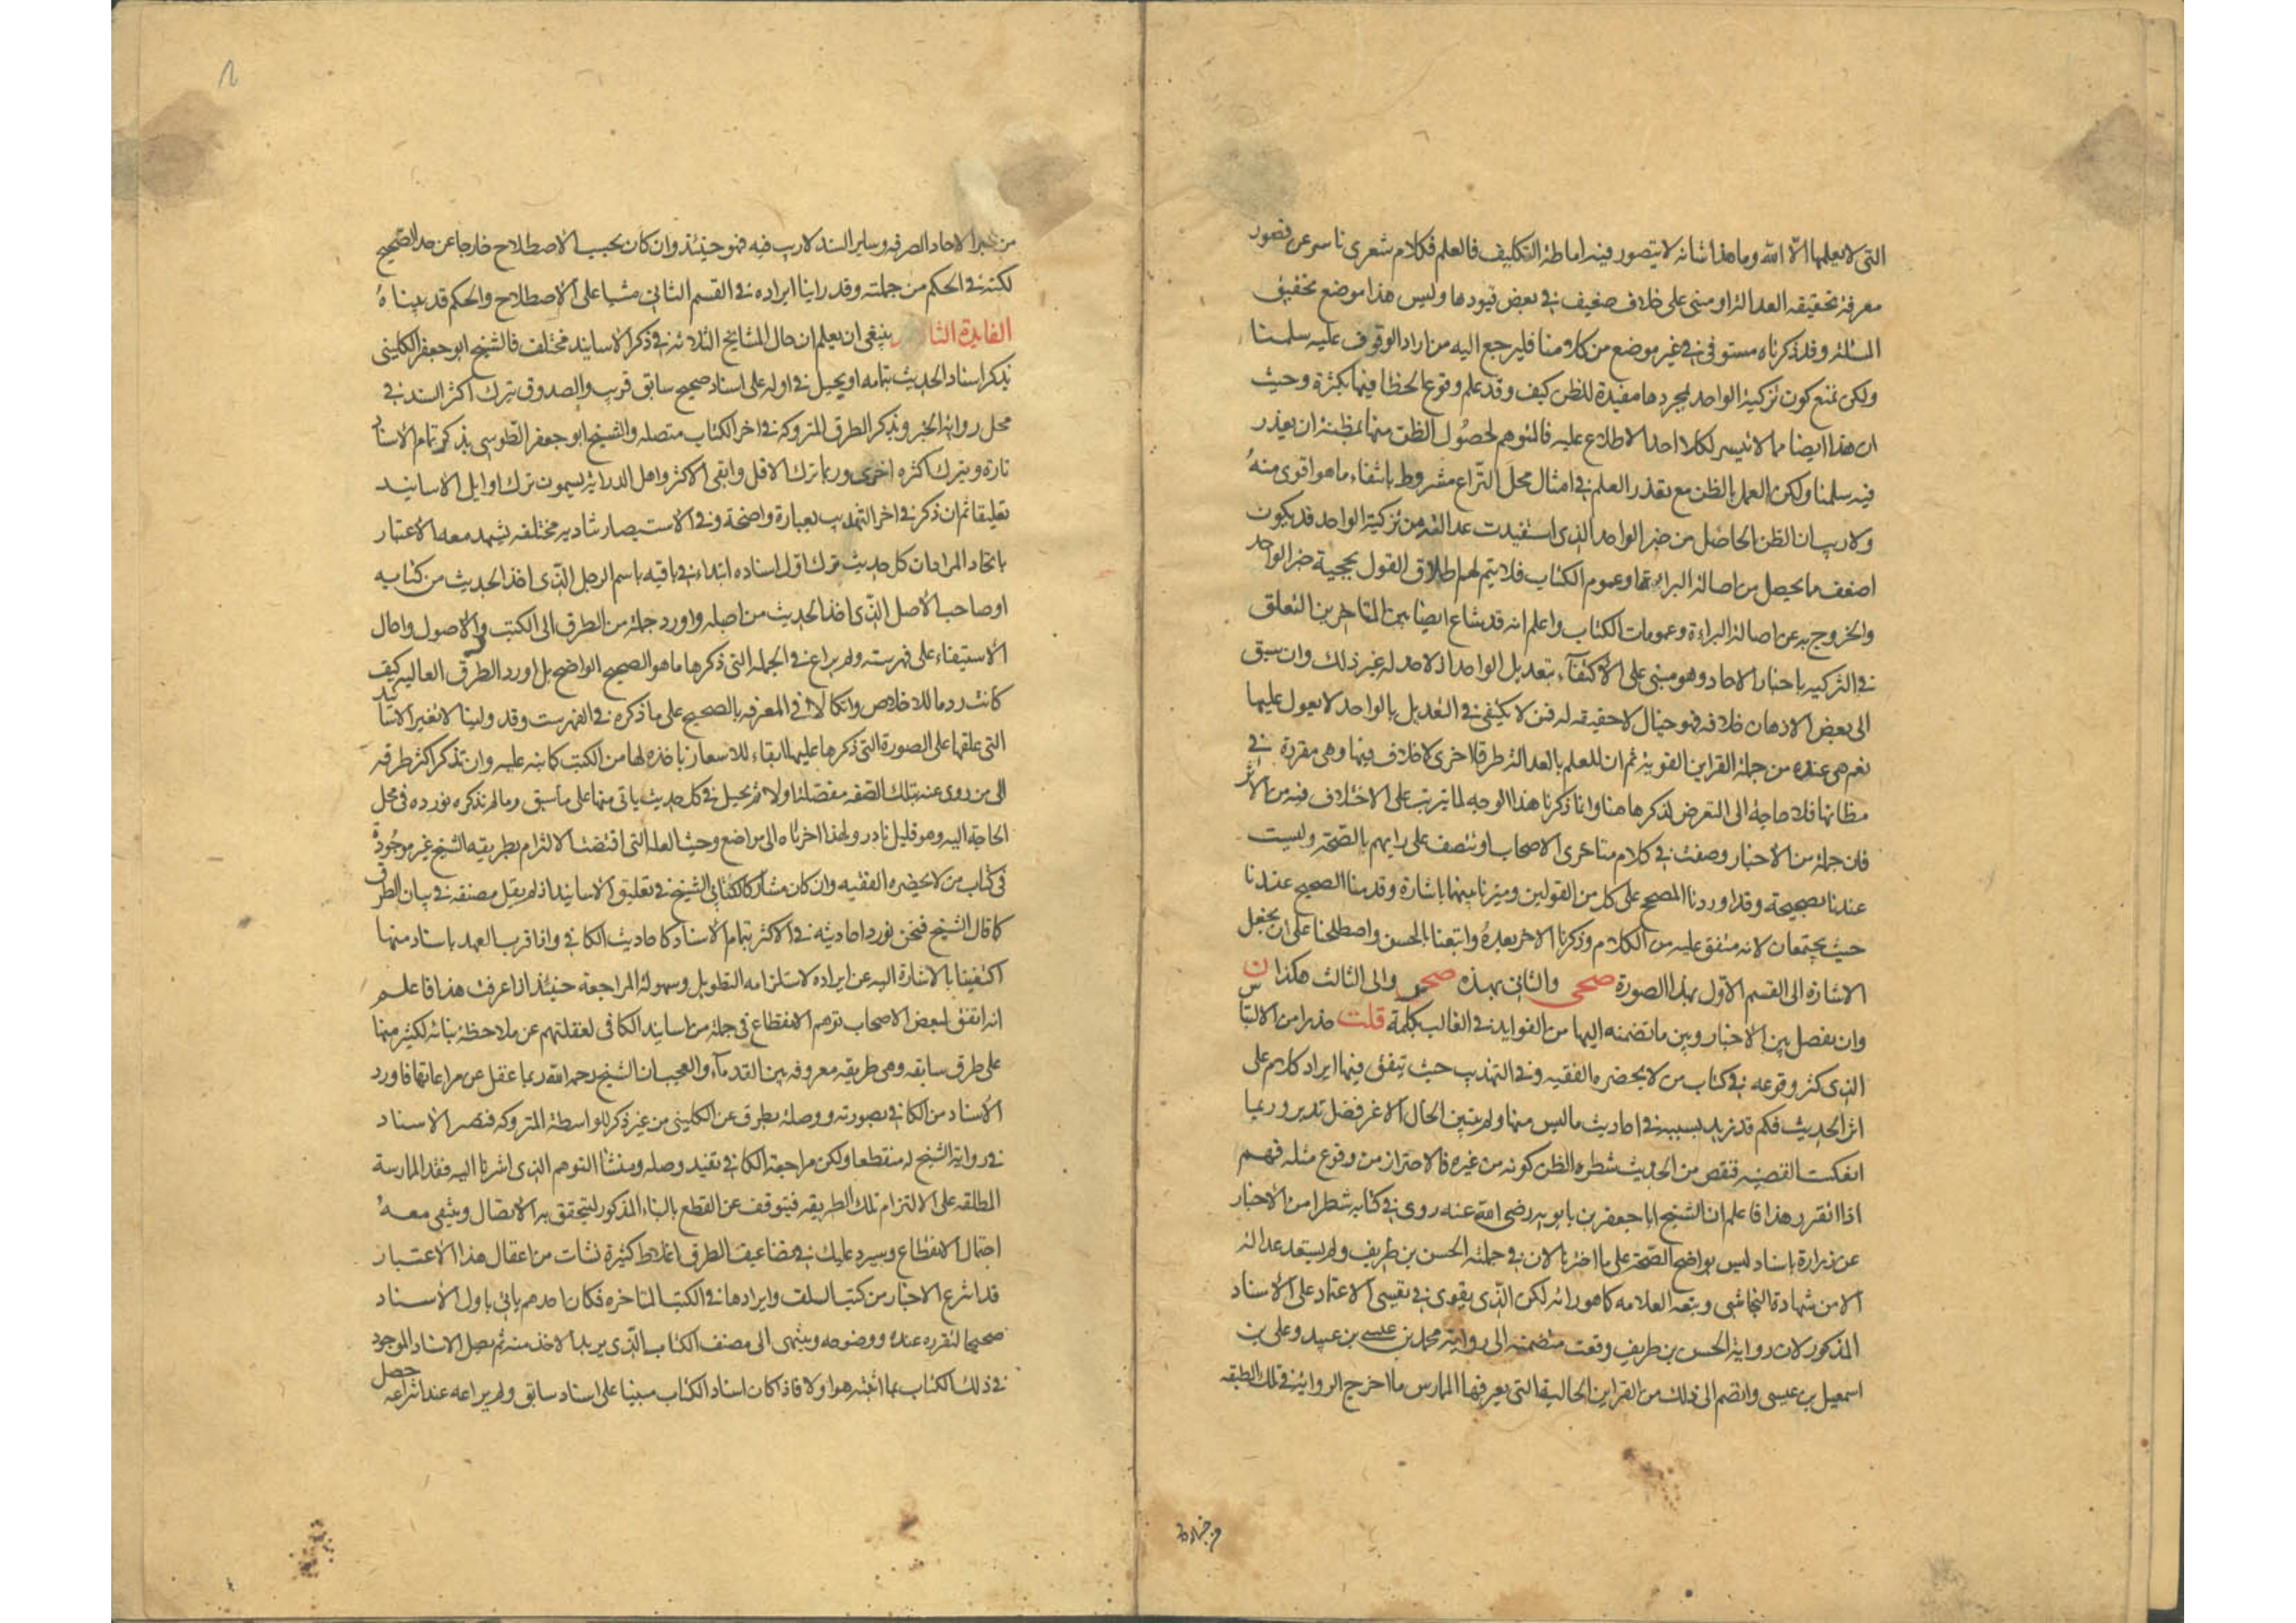 التى لا يعلمها الا الله وما هذا شانه لا يتصور فيه اماطة التكليف فالعلم فكلام شعرى ناش عن قصور
معرفة تحقيقه العدالة او مبنى على خلاف ضعيف فى بعض قيودها وليس هذا موضع تحقيق
المسئلة وقد ذكرناه مستوفى فى غير موضع من كلامنا فليرجع اليه من اراد الوقوف عليه سلمنا
ولكن نمنع كون تزكية الواحد بمجردها مفيدة للظن كيف وقد علم وقوع الخطا فيها بكثرة وحيث
ان هذا ايضا مما لا تيسر لكل احد الاطلاع عليه فالتوهم لحصول الظن منها بمظنة ان يعذر
فيه سلمنا ولكن العمل بالظن مع تعذر العلم فى امثال محل النزاع مشروط بانتفاء ما هو اقوى منه
ولا ريب ان الظن الحاصل من خبر الواحد الذى استفيدت عدالته من تزكية الواحد قد يكون
اضعف ما يحصل من اصالة البراءة او عموم الكتاب فلا يتم لهم اطلاق القول بحجية خبر الواحد
والخروج به عن اصالة البراءة وعمومات الكتاب واعلم انه قد شاع ايضا بين المتاخرين التعلق
فى التزكيه باخبار الاحاد وهو مبنى على الاكتفآء بتعديل الواحد اذ لا مدرك له غير ذلك وان سبق
الى بعض الاذهان خلافه فهو خيال لا حقيقه له فمن لا يكتفى فى التعديل بالواحد لا يعول عليها
نعم هى عنده من جملة القراين القوية ثم ان للعلم بالعدالة طرقا اخرى لا خلاف فيها وهى مقررة فى
مظانها فلا حاجة الى التعرض لذكرها هنا وانما ذكرنا هذا الوجه لما يترتب على الاختلاف فيه من الاثر
فان جملة من الاخبار وصفت فى كلام متاخرى الاصحاب او تتصف على رايهم بالصحة وليست
عندنا بصحيحة وقد اوردنا الصحيح على كل من القولين وميزنا بينهما باشارة وقدمنا الصحيح عندنا
حيث يجتمعان لانه متفق عليه من الكلام وذكرنا الاخر بعده واتبعنا بالحسن واصطلحنا على ان نجعل
الاشارة الى القسم الاول بهذا الصورة صحى والثانى بهذه صحر والى الثالث هكذا ن
وان نفصل بين الاخبار وبين ما تضمنه اليها من الفوايد فى الغالب بكلمة قلت حذرا من الالتباس
الذى كثر وقوعه فى كتاب من لا يحضره الفقيه وفى التهذيب حيث يتفق فيهما ايراد كلام على
اثر الحديث فكم قد زيد بسببه فى احاديث ما ليس منها ولم يتبين الحال الا عن فضل تدبر وربما
انعكست القضية فنقص من الحديث شطره لظن كونه من غيره فالاحتراز من وقوع مثله فهم
اذا تقرر هذا فاعلم ان الشيخ ابا جعفر بن بابويه رضى الله عنه روى فى كتابه شطرا من الاخبار
عن زرارة باسناد ليس بواضح الصحة على ما اخترنا لان فى جملته الحسن بن ظريف ولم يستفد عدالته
الا من شهادة النجاشى وتبعه العلامه كما هو دابه لكن الذى يقوى فى نفسى الاعتماد على الاسناد
المذكور لان رواية الحسن بن ظريف وقعت منضمة الى رواية محمد بن عيسى بن عبيد وعلى بن
اسمعيل بن عيسى وانضم الى ذلك من القراين الحالية التى يعرفها الممارس ما اخرج الرواية فى تلك الطبقه
من خبر الاحاد الصرفه وساير السند لا ريب فيه فهو حينئذ وان كان بحسب الاصطلاح خارجا عن حد الصحيح
لكنه فى الحكم من جملته وقد راينا ايراده فى القسم الثانى مشيا على الاصطلاح والحكم قد بيناه
الفايدة الثا ينبغى ان يعلم ان حال المشايخ الثلاثه فى ذكر الاسانيد مختلف فالشيخ ابو جعفر الكلينى
يذكر اسناد الحديث بتمامه او يحيل فى اوله على اسناد صحيح سابق قريب والصدوق يترك اكثر السند فى
محل رواية الخبر ويذكر الطرق المتروكة فى اخر الكتاب متصله والشيخ ابو جعفر الطوسى يذكر تمام الاسناد
تارة ويترك اكثره اخرى وربما ترك الاقل وابقى الاكثر واهل الدراية يسمون ترك اوايل الاسانيد
تعليقا ثم ان ذكر فى اخر التهذيب بعبارة واضحة وفى الاستبصار بتادية مختلفه يشهد معه الاعتبار
باتحاد المراد ان كل حديث ترك اول اسناده ابتداء فى باقيه باسم الرجل الذى اخذ الحديث من كتابه
او صاحب الاصل الذى اخذ الحديث من اصله واورد جملة من الطرق الى الكتب والاصول واحال
الاستيفاء على فهرسته ولم يراع فى الجمله التى ذكرها ما هو الصحيح الواضح بل اورد الطرق العاليه كيف
كانت روما للاختصاص واتكالا فى المعرفه بالصحيح على ما ذكره فى الفهرست وقد راينا ان لا نغير الاسانيد
التى علقها على الصورة التى ذكرها عليها ابقاء للاشعار باخذه لها من الكتب كما نبه عليه وان نذكر اكثر طرقه
الى من روى عنه بتلك الصفه مفصلة اولا ثم نحيل فى كل حديث ياتى منها على ما سبق وما لم نذكره نورده فى محل
الحاجة اليه وهو قليل نادر ولهذا اخرناه الى مواضع وحيث العلة التى اقتضت الالتزام بطريقه الشيخ غير موجودة
فى كتاب من لا يحضره الفقيه وان كان مشاركا لكتابى الشيخ فى تعليق الاسانيد اذ لم يقل مصنفه فى بيان الطرق
كما قال الشيخ فنحن نورد احاديثه فى الاكثر بتمام الاسناد كاحاديث الكافى واذا قرب العهد باسناد منها
اكتفينا بالاشارة اليه عن ايراده لاستلزامه التطويل وسهولة المراجعة حينئذ اذا عرفت هذا فاعلم
انه اتفق لبعض الاصحاب توهم الانقطاع فى جملة من اسانيد الكافى لغفلتهم عن ملاحظة بنائه لكثير منها
على طرق سابقه وهى طريقه معروفه بين القدمآء والعجب ان الشيخ رحمه الله ربما غفل عن مراعاتها فاورد
الاسناد من الكافى بصورته ووصله بطرق عن الكلينى من غير ذكر للواسطة المتروكه فيصير الاسناد
فى رواية الشيخ له منقطعا ولكن مراجعة الكافى تفيد وصله ومنشأ التوهم الذى اشرنا اليه فقد الممارسة
المطلقه على الالتزام تلك الطريقه فيتوقف عن القطع بالبناء المذكور ليتحقق به الاتصال وينتفى معه
احتمال الانقطاع وسيرد عليك فى تضاعيف الطرق اغلاط كثيرة نشات من اغفال هذا الاعتبار
عند انتزاع الاخبار من كتب السلف وايرادها فى الكتب المتاخره فكان احدهم ياتى باول الاسناد
صحيحا لتقرره عنده ووضوحه وينتهى الى مصنف الكتاب الذى يريد الاخذ منه ثم يصل الاسناد الموجود
فى ذلك الكتاب بما اثبته هو اولا فاذا كان اسناد الكتاب مبنيا على اسناد سابق ولم يراعه عند انتزاعه حصل